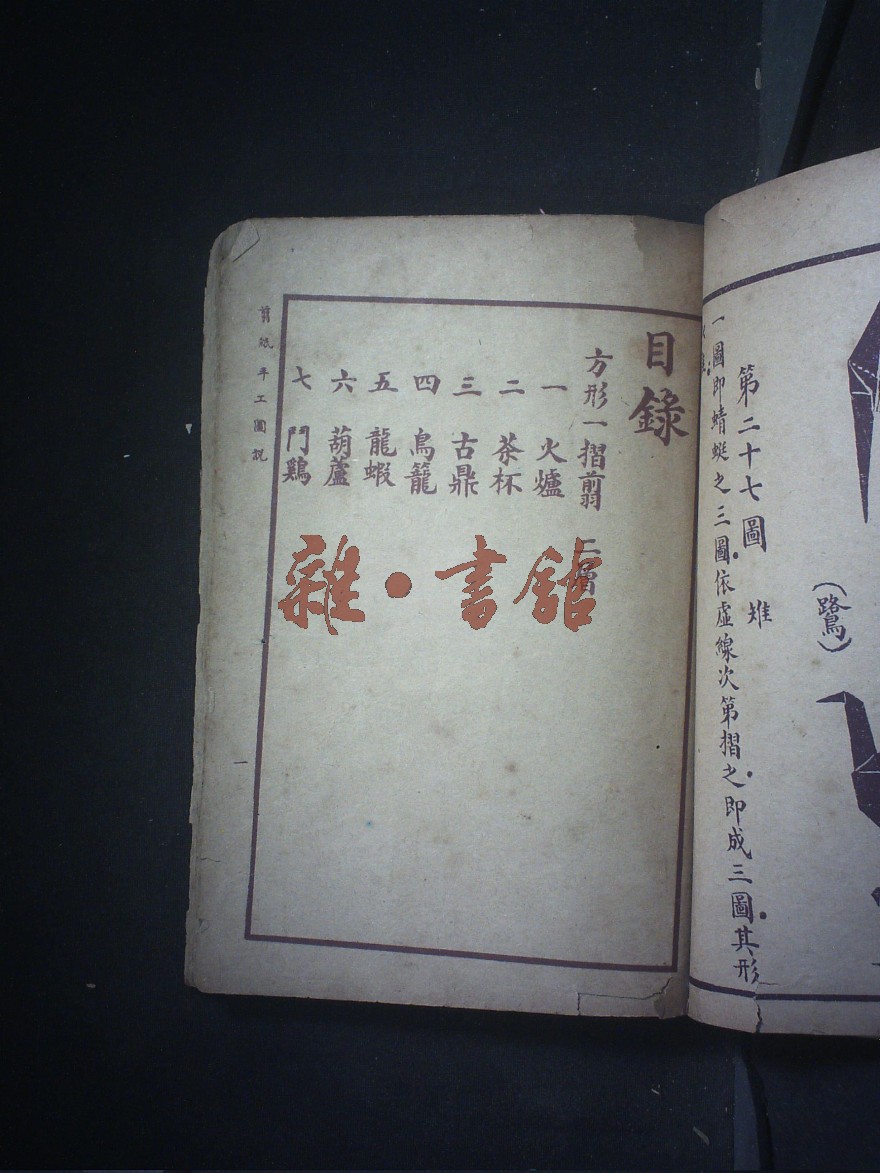 第二十七圖 雉
(鷺)
一圖即蜻蜓之三圖依虛線次第摺之即成三圖其形
目錄
方形一摺剪 二層
一 火爐
二 茶杯
三 古鼎
四 鳥籠
五 龍蝦
六 葫蘆
七 鬥鷄
剪紙手工圖説
一
雜·書館